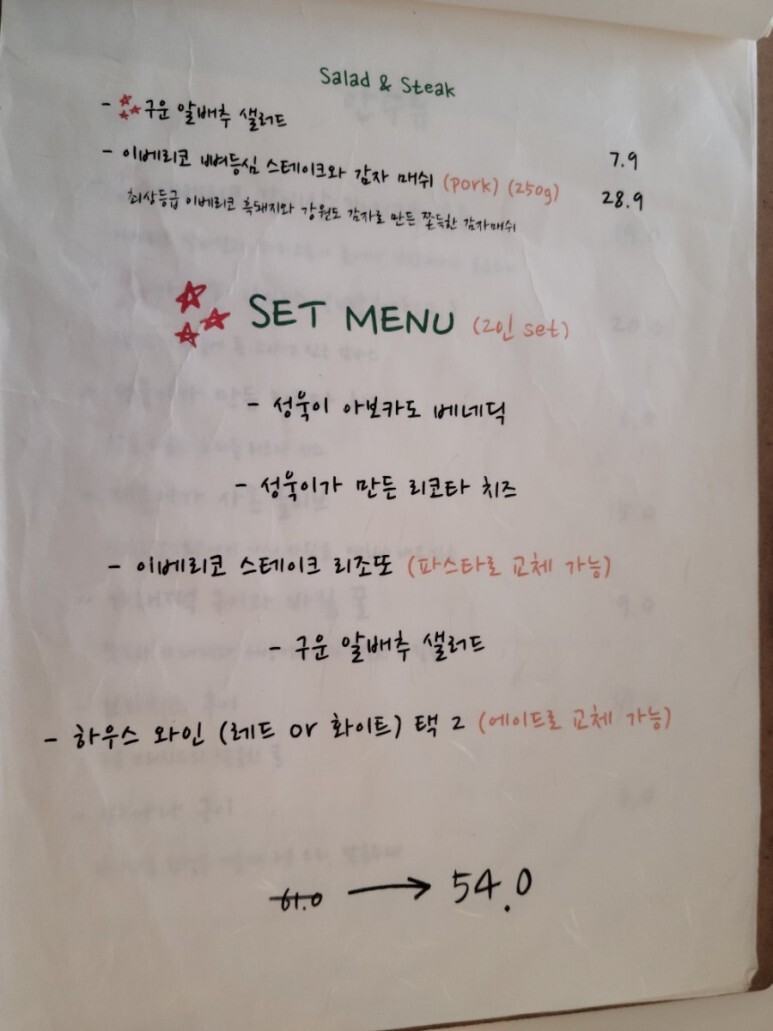 Salad & Steak
- 구운 알배추 샐러드 7.9
- 이베리코 뼈등심 스테이크와 감자 매쉬 (pork) (250g) 28.9
최상등급 이베리코 흑돼지와 강원도 감자로 만든 쫀득한 감자매쉬
SET MENU (2인 set)
- 성욱이 아보카도 베네딕
- 성욱이가 만든 리코타 치즈
- 이베리코 스테이크 리조또 (파스타로 교체 가능)
- 구운 알배추 샐러드
- 하우스 와인 (레드 or 화이트) 택 2 (에이드로 교체 가능)
61.0 → 54.0